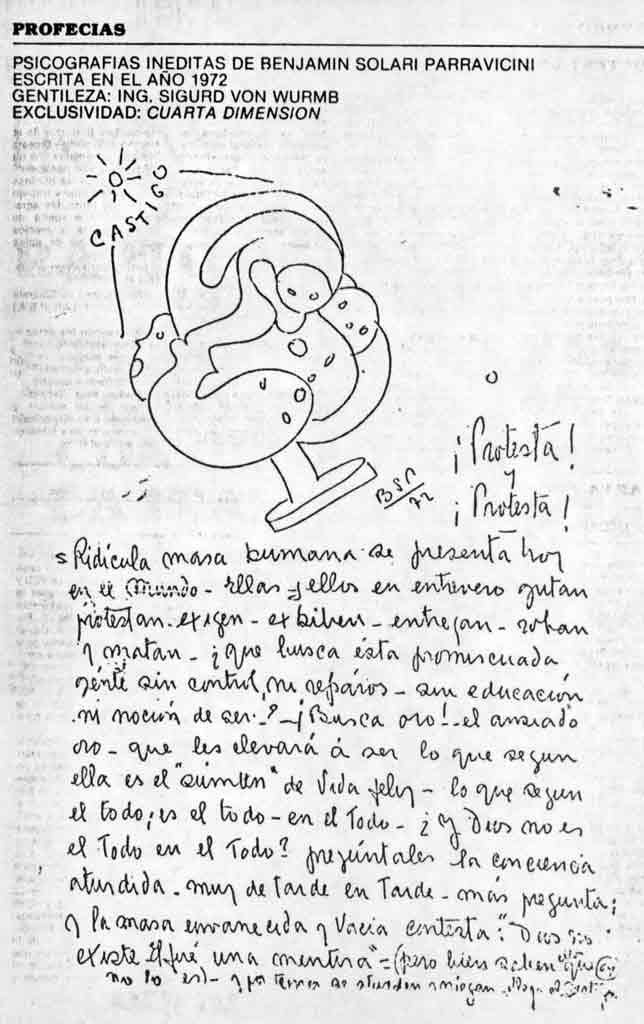 PROFECIAS
PSICOGRAFIAS INEDITAS DE BENJAMIN SOLARI PARRAVICINI
ESCRITA EN EL AÑO 1972
GENTILEZA: ING. SIGURD VON WURMB
EXCLUSIVIDAD: CUARTA DIMENSION
CASTIGO
BSP
72
¡Protestá!
y
¡Protestá!
Ridícula masa humana se presenta hoy
en el Mundo - Ellas y ellos en entrevero gritan
protestan. exigen - exhiben - entregan - roban
y matan - ¿que busca ésta promiscuada
gente sin control, ni reparos - sin educación
ni noción de ser? - ¡Busca oro! - el ansiado
oro - que les elevará á ser lo que segun
ella es el "súmun" de Vida feliz - lo que segun
el todo, es el todo - en el Todo - ¿Y Dios no es
el Todo en el Todo? pregúntales la conciencia
aturdida. muy de tarde en Tarde - más pregunta;
y la masa envanecida y Vacia contesta: "Dios no
existe El fué una mentira" = (pero bien saben que
no lo es) - y por temor se aturden